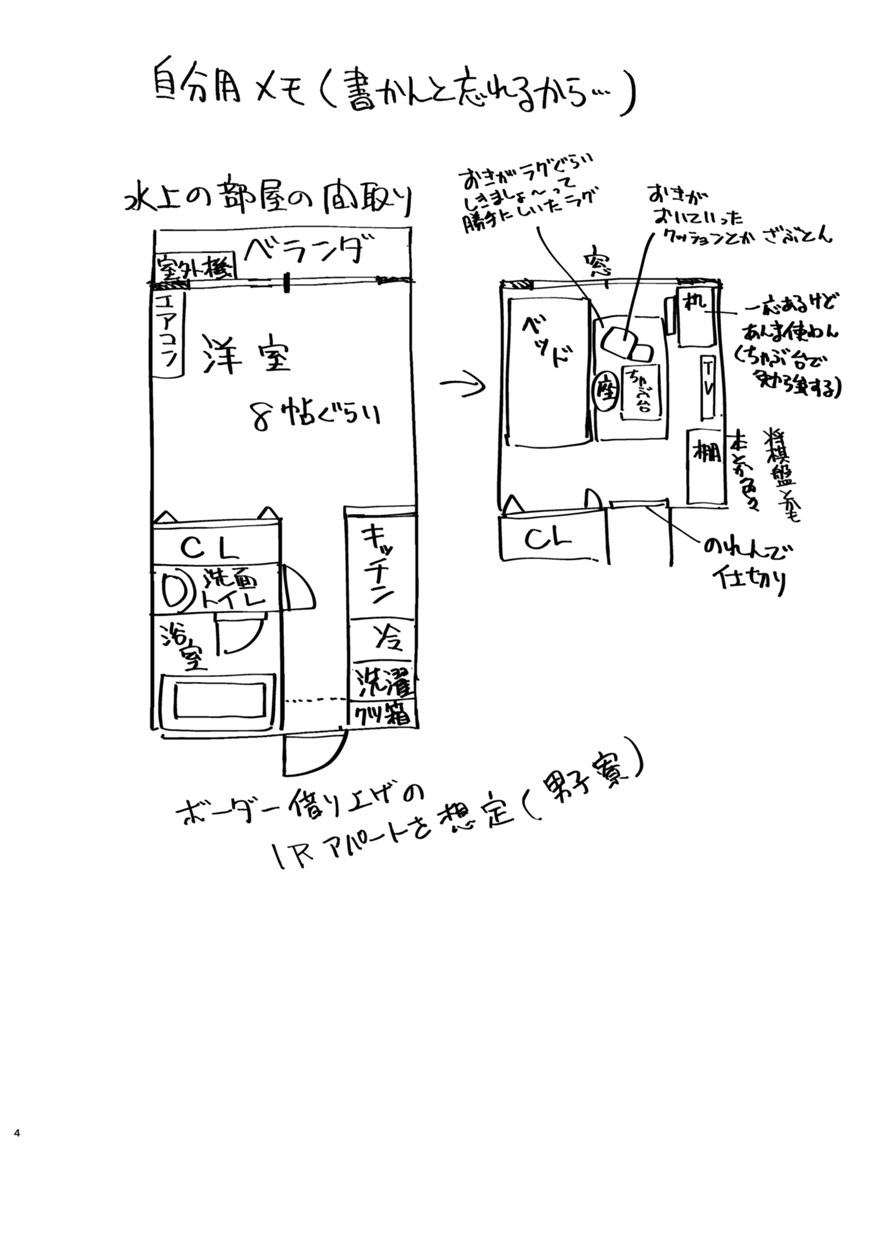 自分用メモ(書かんと忘れるから…)
水上の部屋の間取り
ベランダ
室外機
エアコン
洋室
8帖ぐらい
CL
洗面
トイレ
浴室
キッチン
冷
洗濯
クツ箱
おきがラグぐらい
しきましょ〜って
勝手にしいたラグ
おきが
おいていった
クッションとか ざぶとん
窓
ベッド
座
ちゃぶ台
机
一応あるけど
あんま使わん
(ちゃぶ台で
勉強する)
TV
棚
将棋盤とかも
本とか色々
CL
のれんで
仕切り
ボーダー借り上げの
1Rアパートを想定(男子寮)
4